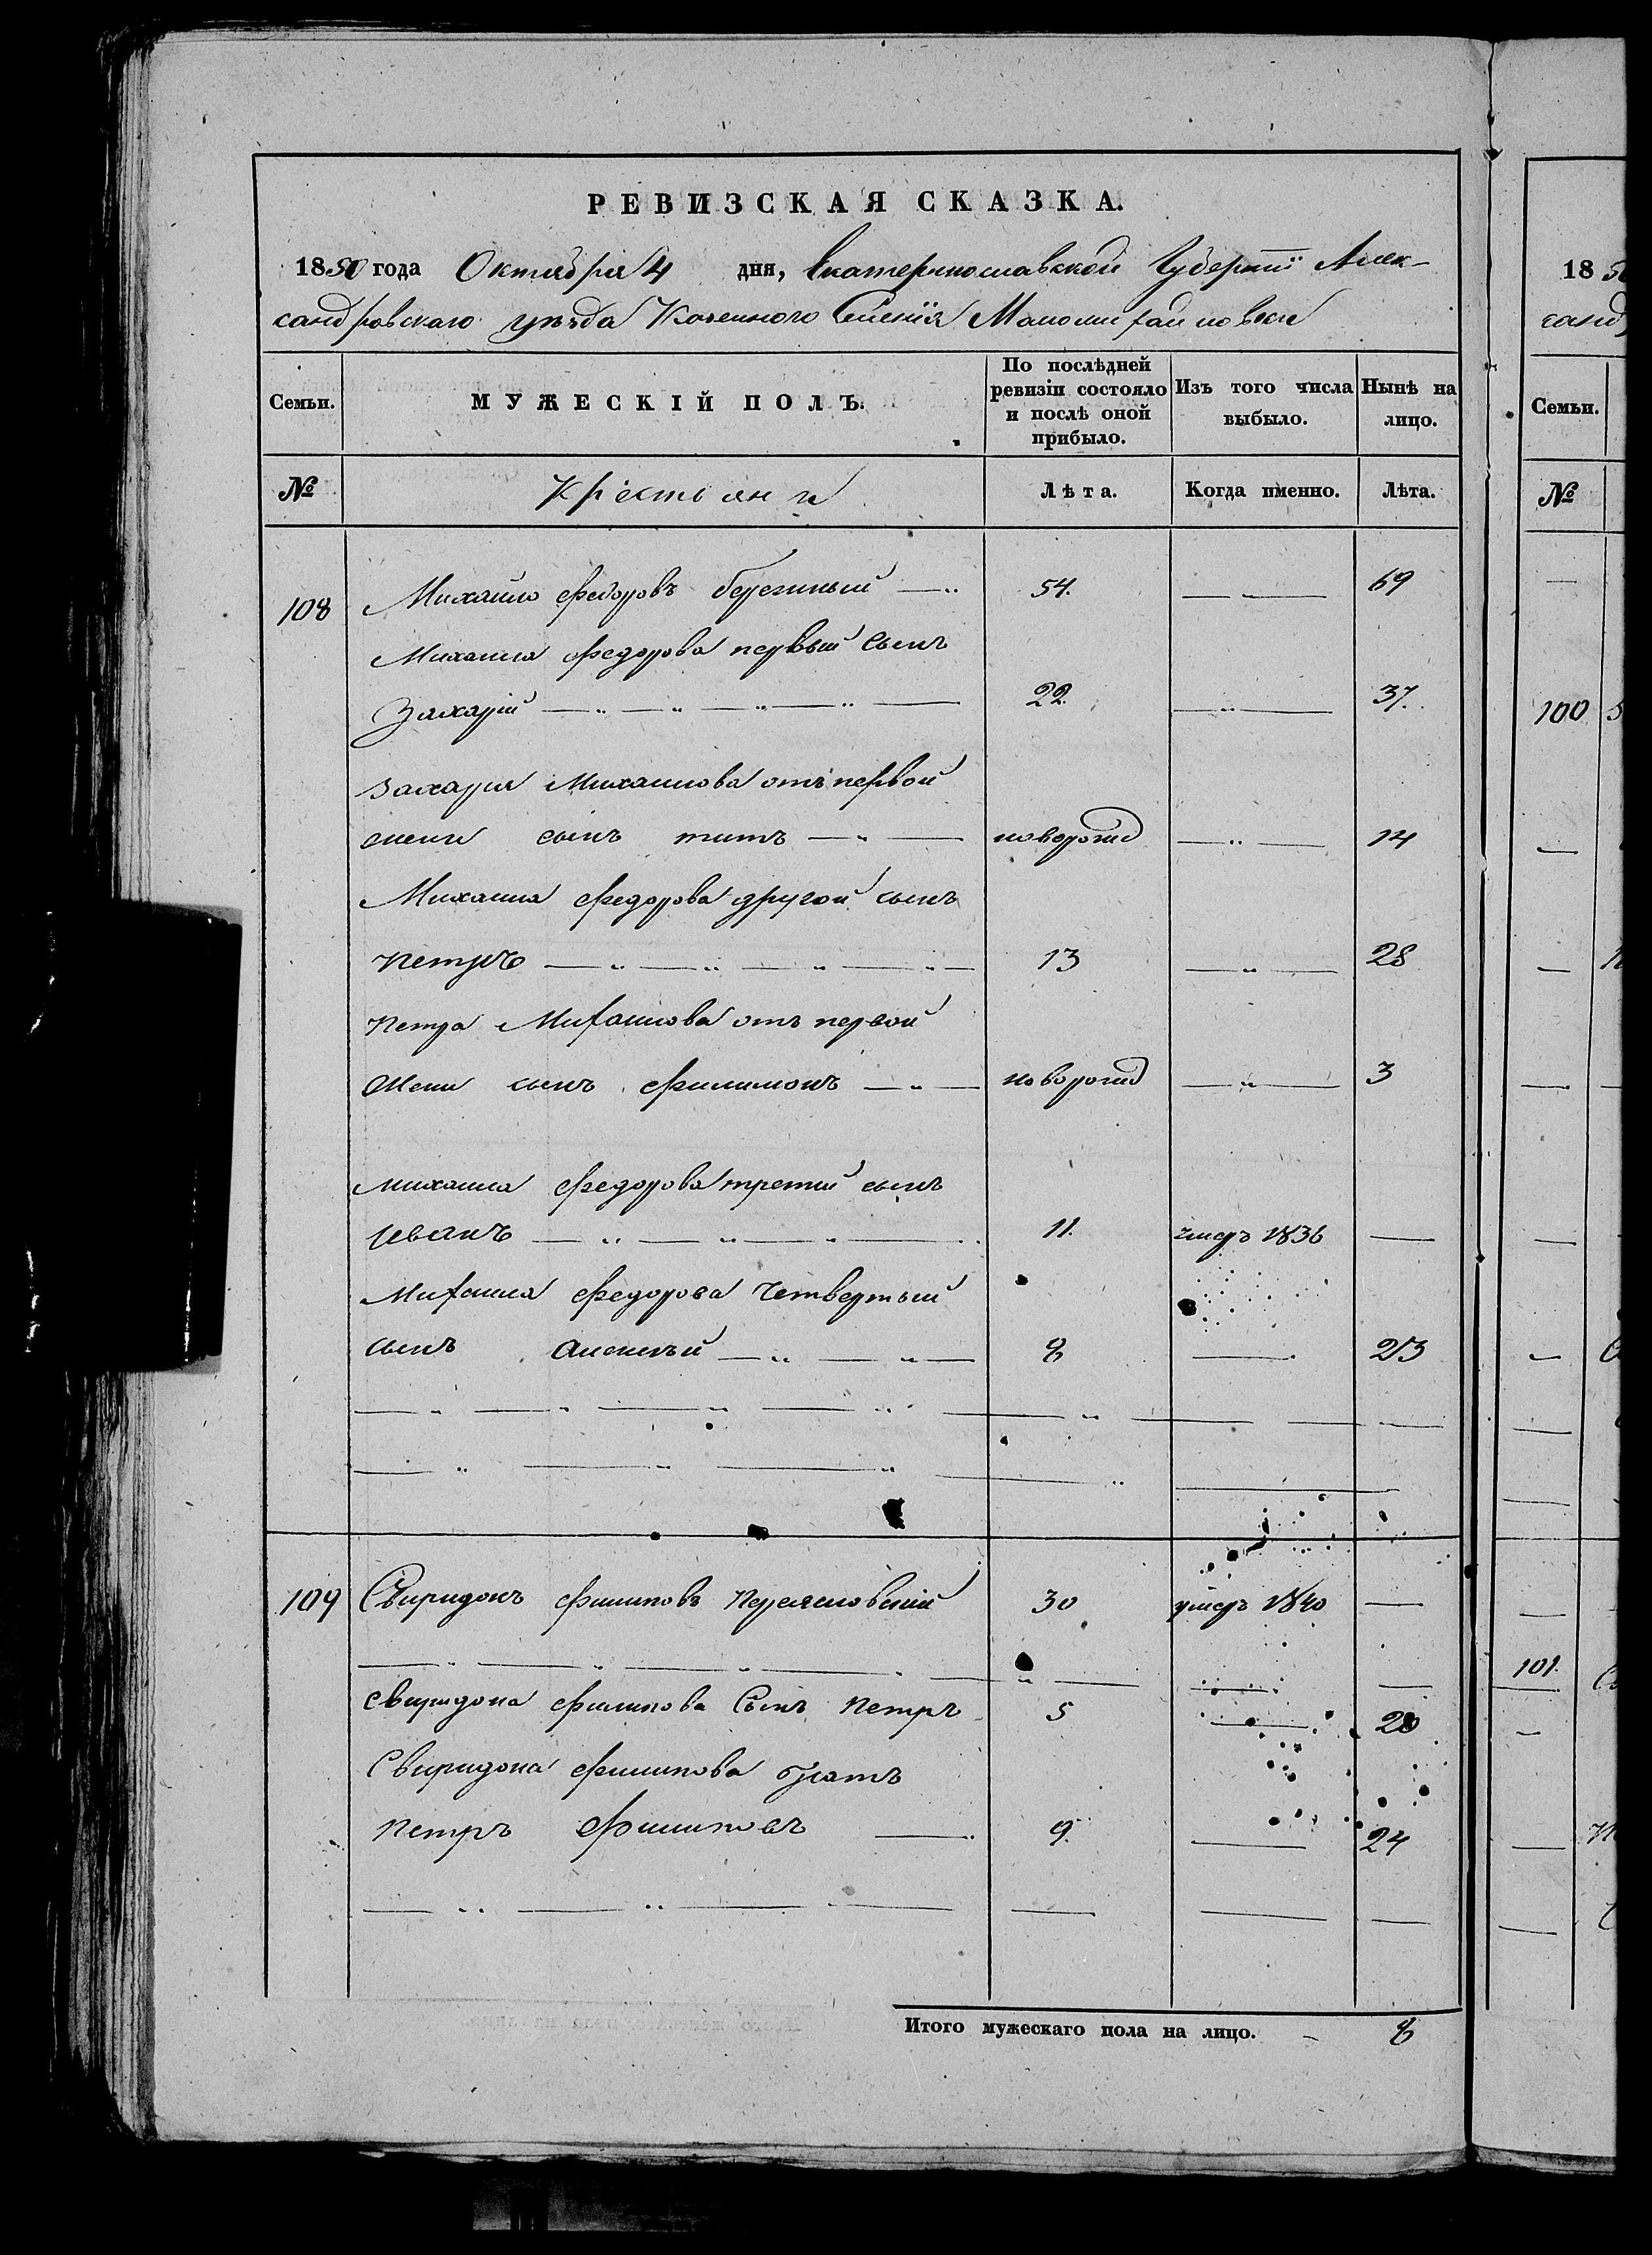 РЕВИЗСКАЯ СКАЗКА.
1850 года Октября 4 дня, Екатеринославской Губернии Алек-
сандровскаго уѣзда Казенного Селенія Маломихайловки
Семьи. МУЖЕСКІЙ ПОЛЪ. По послѣдней ревизіи состояло и послѣ оной прибыло. Изъ того числа выбыло. Нынѣ на лицо.
№ Крестьяни Лѣта. Когда именно. Лѣта.
108 Михайло Федоровъ 54. 69
Михаила Федорова первый сынъ
Захарій 22. 37.
Захария Михаилова отъ первой
жени сынъ титъ новорожд 14
Михаила Федорова другой сынъ
Петръ 13 28
Петра Михаилова отъ первой
жени сынъ Филимонъ новорожд 3
Михаила Федорова третий сынъ
Иванъ 11. умеръ 1836
Михаила Федорова четвертый
сынъ Алексѣй 8 23
109 Свиридонъ Филиповъ Переясловский 30 умеръ 1840
Свиридона Филипова Сынъ Петръ 5 20
Свиридона Филипова братъ
Петръ Филиповъ 9. 24
Итого мужескаго пола на лицо. 8
18 50
санд
Семьи.
№
100
101.